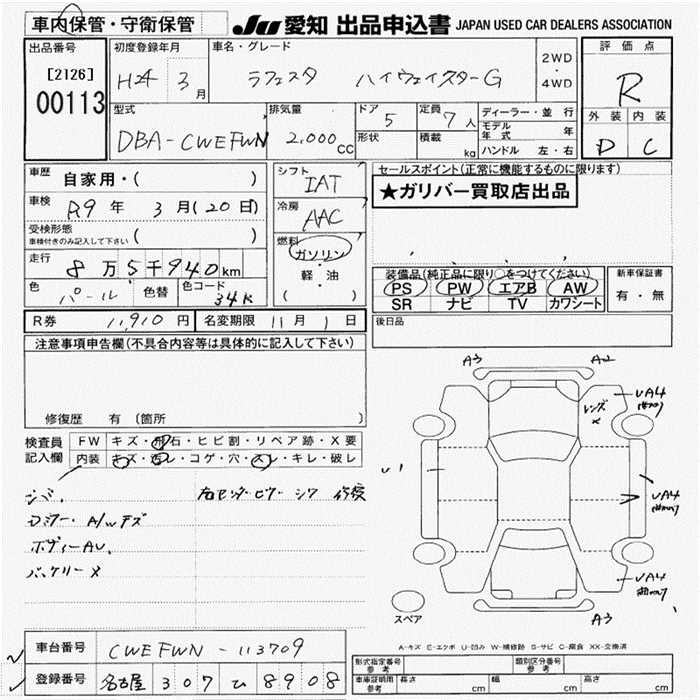 車内保管・守衛保管
JU 愛知 出品申込書 JAPAN USED CAR DEALERS ASSOCIATION
出品番号
[2126]
00113
初度登録年月
H24 3月
車名・グレード
ラフェスタ ハイウェイスターG
2WD・4WD
評価点
R
外装 内装
D C
型式
DBA-CWEFWN
排気量
2,000cc
ドア
5
形状
定員
7人
積載
kg
ディーラー・並行
モデル年式 年
ハンドル 左・右
車歴 自家用・( )
車検 R9年 3月(20日)
受検形態
車検付きのみ記入して下さい ( )
走行 8万5千940km
色 パール 色替 色コード 34K
シフト
IAT
冷房
AAC
燃料
ガソリン
・
軽・油
( )
セールスポイント(正常に機能するものに限ります)
★ガリバー買取店出品
装備品(純正品に限り○をつけてください)
PS PW エアB AW
SR ナビ TV カワシート
新車保証書
有・無
後日品
R券 11,910円 名変期限 11月 1日
注意事項申告欄(不具合内容等は具体的に記入して下さい)
修復歴 有(箇所 )
検査員記入欄
FW キズ・飛石・ヒビ割・リペア跡・X要
内装 キズ・汚レ・コゲ・穴・スレ・キレ・破レ
右センターピラー シワ 修復
ドアミラー・A/Wキズ
ボディーAU、
バッテリーX
A3 A2
レンズX
UA4
U1
UA4
UA4
A3
スペア
A-キズ E-エクボ U-凹み W-補修跡 S-サビ C-腐食 XX-交換済
車台番号 CWEFWN-113709
登録番号 名古屋 307 ひ 8908
形式指定番号 参考
類別区分番号 参考
車庫証明用 参考 長さ cm 幅 cm 高さ cm